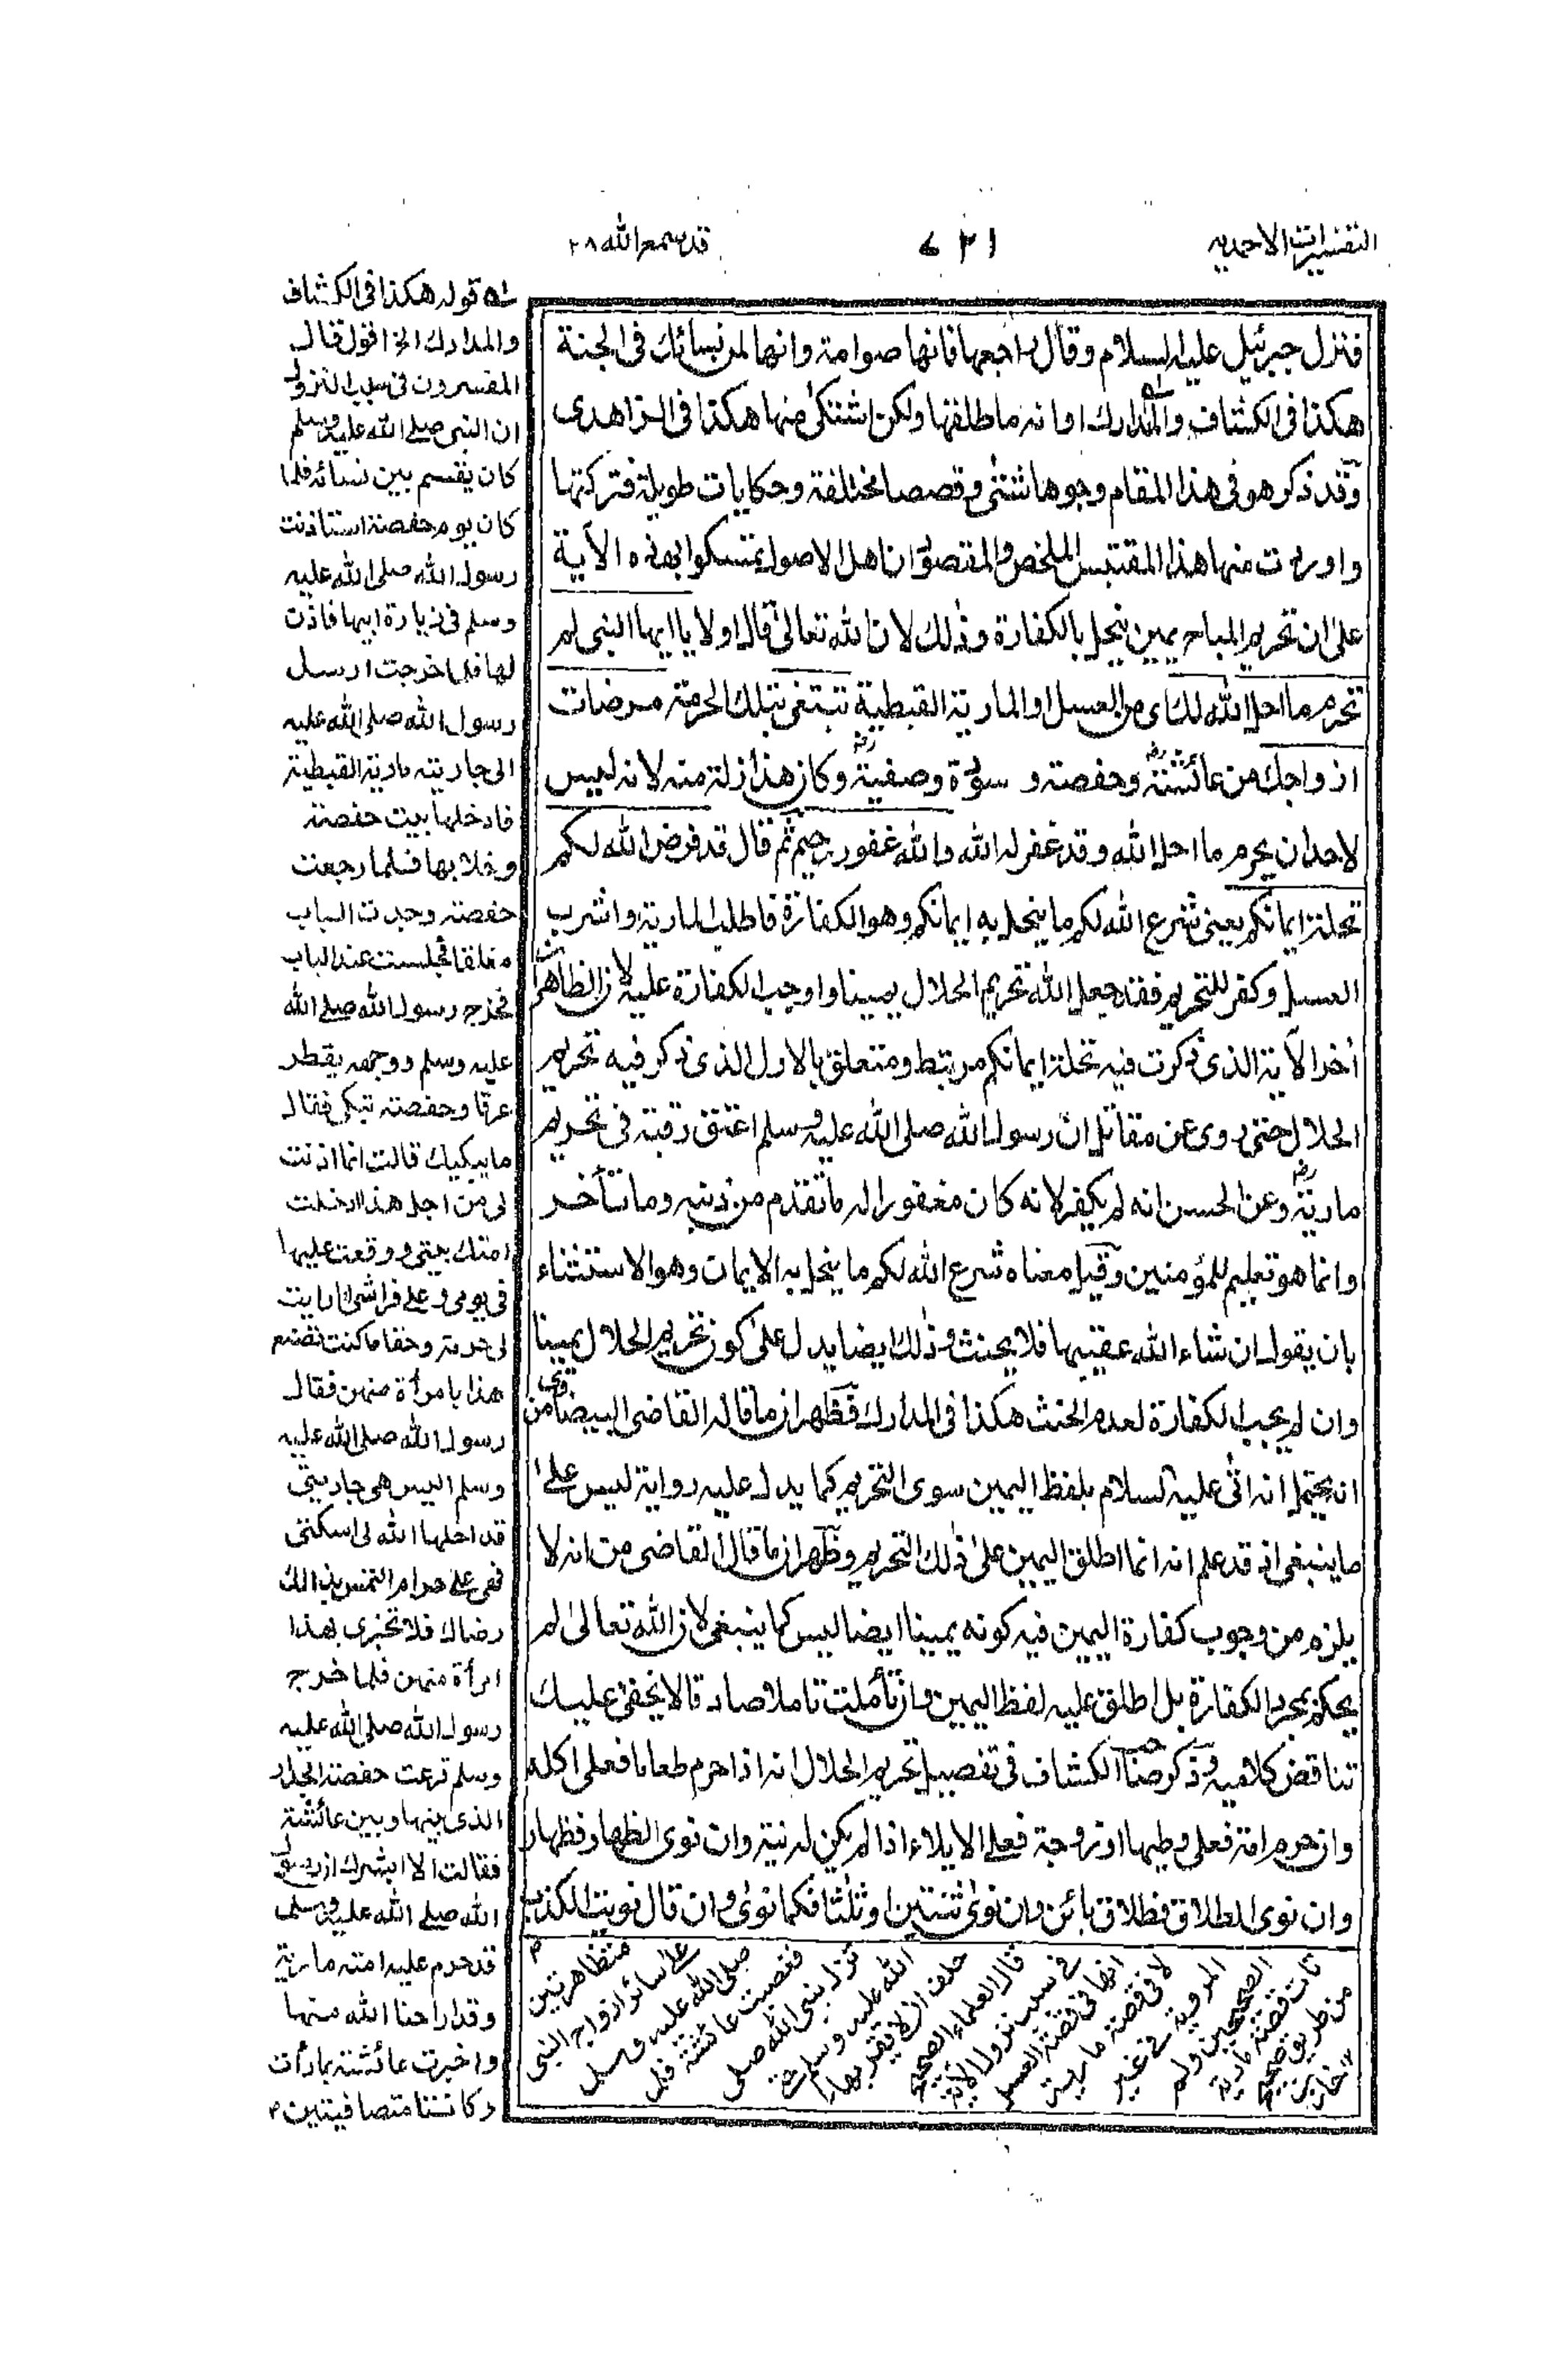 التفسيرات الاحمدية
٧٢١
قد سمع الله ٢٨
فنزل جبرئيل عليه السلام وقال راجعها فانها صوامة وانها لمن نسائك فى الجنة
هكذا فى الكشاف والمدارك او انه ما طلقها ولكن اشتكى منها هكذا فى الزاهدى
وقد ذكر هو فى هذا المقام وجوها شتى وقصصا مختلفة وحكايات طويلة فتركتها
واوردت منها هذا المقتبس الملخص والمقصود ان اهل الاصول تمسكوا بهذه الآية
على ان تحريم المباح يمين ينحل بالكفارة وذلك لان الله تعالى قال اولا يا ايها النبى لم
تحرم ما احل الله لك اى من العسل او المارية القبطية تبتغى بتلك الحرمة مرضات
ازواجك من عائشة رض وحفصة و سودة وصفية رض وكان هذا زلة منه لانه ليس
لاحد ان يحرم ما احل الله وقد غفر له الله والله غفور رحيم ثم قال قد فرض الله لكم
تحلة ايمانكم يعنى شرع الله لكم ما ينحل به ايمانكم وهو الكفارة فاطلب المارية واشرب
العسل وكفر للتحريم فقد جعل الله تحريم الحلال يمينا واوجب الكفارة عليه لان الظاهر ان
أخر الآية الذى ذكرت فيه تحلة ايمانكم مرتبط ومتعلق بالاول الذى ذكر فيه تحريم
الحلال حتى روى عن مقاتل ان رسول الله صلى الله عليه وسلم اعتق رقبة فى تحريم
مارية رض وعن الحسن انه لم يكفر لانه كان مغفورا له ما تقدم من ذنبه وما تأخر
وانما هو تعليم للمؤمنين وقيل معناه شرع الله لكم ما ينحل به الايمان وهو الاستثناء
بان يقول ان شاء الله عقيبها فلا يحنث وذلك ايضا يدل على كون تحريم الحلال يمينا
وان لم يجب الكفارة لعدم الحنث هكذا فى المدارك فظهر ان ما قاله القاضى البيضاوى من
انه يحتمل انه اتى عليه السلام بلفظ اليمين سوى التحريم كما يدل عليه رواية ليس على
ما ينبغى اذ قد علم انه انما اطلق اليمين على ذلك التحريم وظهر ان ما قال القاضى من انه لا
يلزم من وجوب كفارة اليمين فيه كونه يمينا ايضا ليس كما ينبغى لان الله تعالى لم
يحكم بمجرد الكفارة بل اطلق عليه لفظ اليمين وان تأملت تاملا صادقا لا يخفى عليك
تناقض كلاميه وذكر صاحب الكشاف فى تفصيل تحريم الحلال انه اذا حرم طعاما فعلى اكله
وان حرم امة فعلى وطيها او زوجة فعلى الايلاء اذا لم يكن له نية وان نوى الظهار فظهار
وان نوى الطلاق فطلاق بائن وان نوى ثنتين او ثلثا فكما نوى وان قال نويت الكذب
له قوله هكذا فى الكشاف
والمدارك الخ اقول قال
المفسرون فى سبب النزول
ان النبى صلے الله عليه وسلم
كان يقسم بين نسائه فلما
كان يوم حفصة استاذنت
رسول الله صلى الله عليه
وسلم فى زيارة ابيها فاذن
لها فلما خرجت ارسل
رسول الله صلى الله عليه
الى جاريته مارية القبطية
فادخلها بيت حفصة
وخلا بها فلما رجعت
حفصة وجدت الباب
مغلقا فجلست عند الباب
فخرج رسول الله صلے الله
عليه وسلم ووجهه يقطر
عرقا وحفصة تبكى فقال
ما يبكيك قالت انما اذنت
لى من اجل هذا ادخلت
امتك بيتى ووقعت عليها
فى يومى وعلے فراشى اما رايت
لى حرمة وحقا ما كنت تصنع
هذا بامرأة منهن فقال
رسول الله صلى الله عليه
وسلم اليس هى جاريتى
قد احلها الله لى اسكتى
فهى على حرام التمس بذالك
رضاك فلا تخبرى بهذا
امرأة منهن فلما خرج
رسول الله صلى الله عليه
وسلم قرعت حفصة الجدار
الذى بينها وبين عائشة
فقالت الا ابشرك ان رسول
الله صلے الله عليه وسلم
قد حرم عليه امته مارية
وقد اراحنا الله منها
واخبرت عائشة بما رأت
وكانتا متصافيتين م
م متظاهرتين
على سائر ازواج النبى
صلى الله عليه وسلم
فغضبت عائشة فلم
تزل بنبى الله صلى
الله عليه وسلم حتى
حلف ان لا يقربها
قال العلماء الصحيح
فى سبب نزول الآية
انها فى قصة العسل
لا فى قصة مارية
المروية فى غير
الصحيحين ولم
تات قصة مارية
من طريق صحيح
خازن